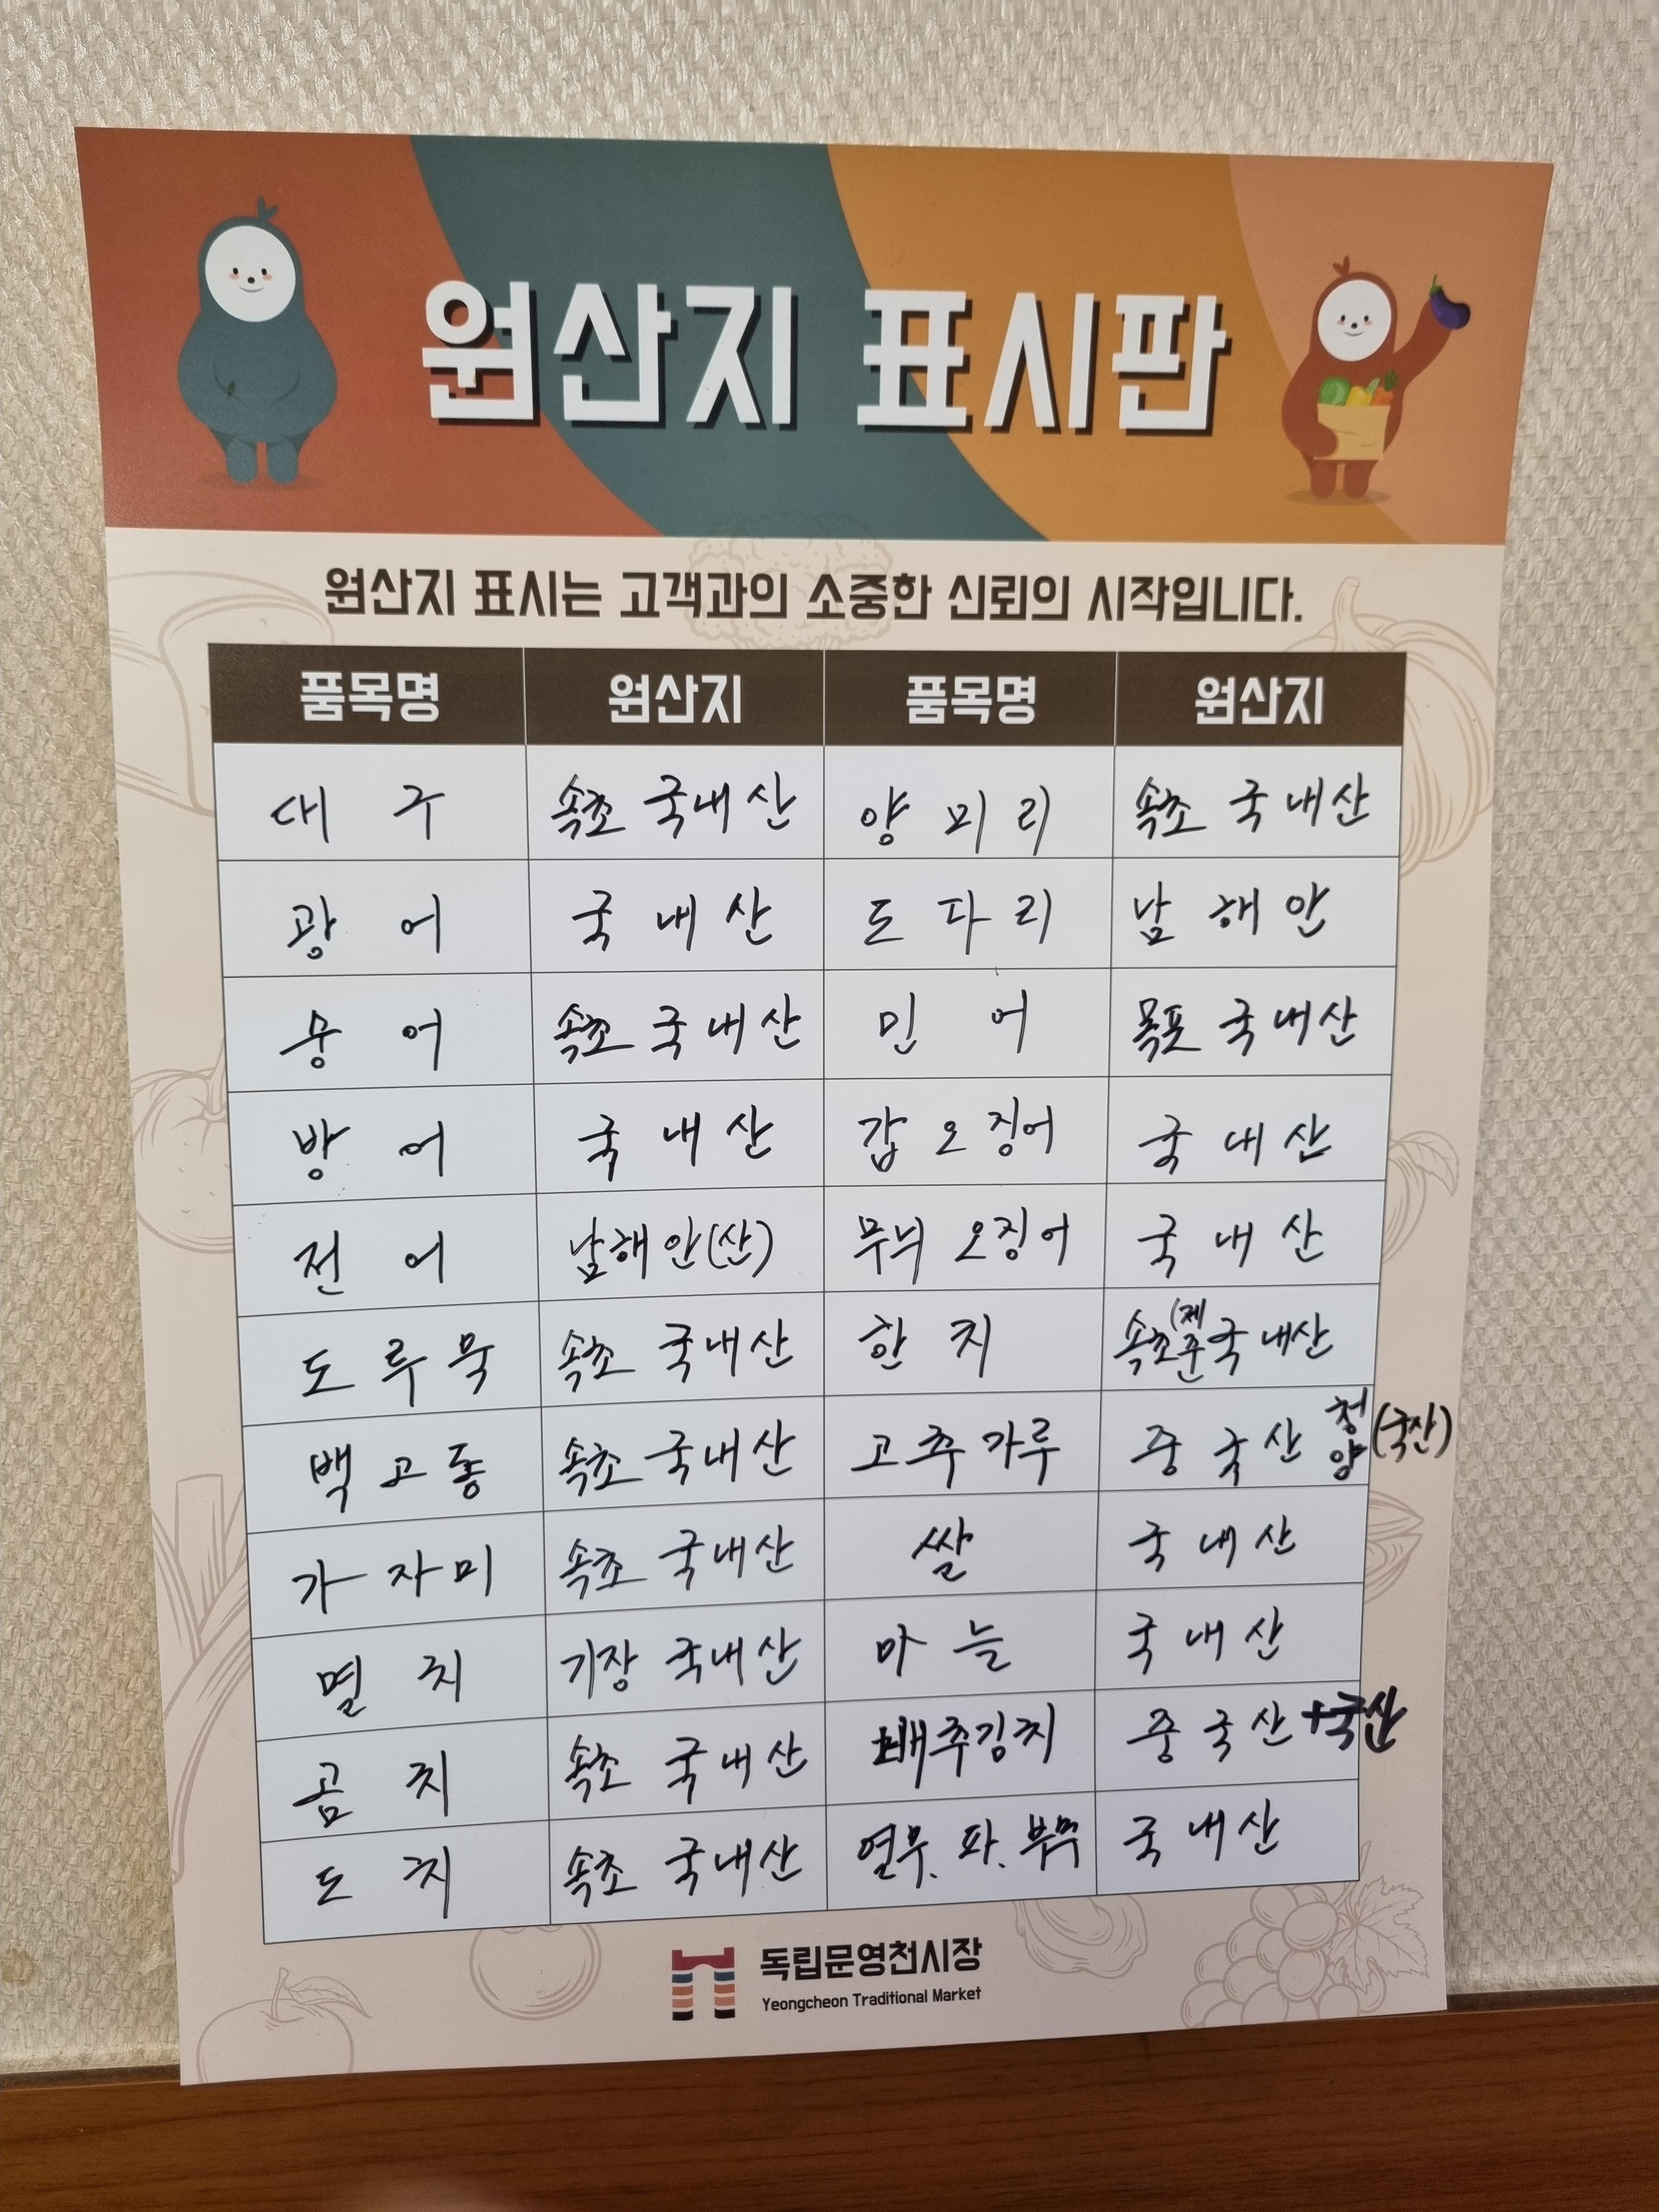 원산지 표시판
원산지 표시는 고객과의 소중한 신뢰의 시작입니다.
품목명 원산지 품목명 원산지
대구 속초 국내산 양미리 속초 국내산
광어 국내산 도다리 남해안
숭어 속초 국내산 민어 목포 국내산
방어 국내산 갑오징어 국내산
전어 남해안(산) 무늬 오징어 국내산
도루묵 속초 국내산 한치 속초(제주 국내산
백고동 속초 국내산 고추가루 중국산 청양 (국산)
가자미 속초 국내산 쌀 국내산
멸치 기장 국내산 마늘 국내산
곰치 속초 국내산 배추김치 중국산+국산
도치 속초 국내산 열무. 파. 국내산
독립문영천시장
Yeongcheon Traditional Market